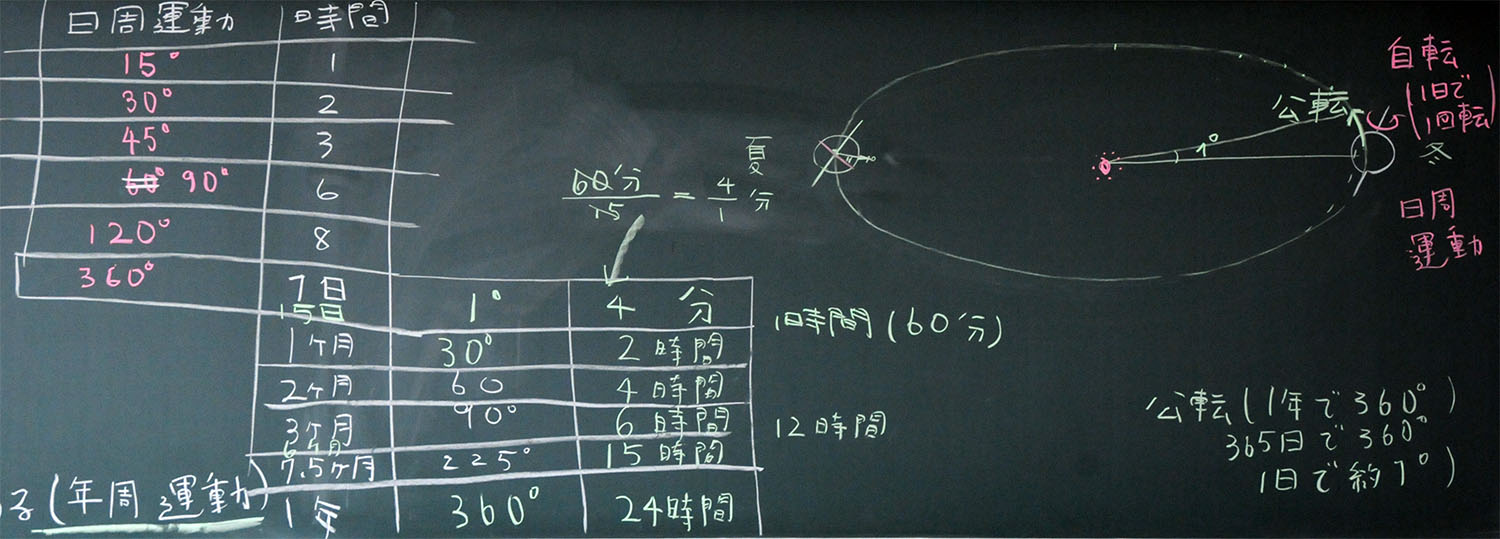 日周運動 時間
15° 1
30° 2
45° 3
60° 90° 6
120° 8
360° 1日 1° 4 分
15日 1時間(60分)
1ヶ月 30° 2時間
2ヶ月 60 4時間
3ヶ月 90° 6時間
6ヶ月 12時間
7.5ヶ月 225° 15時間
(年周運動) 1年 360° 24時間
60分/15 = 4/1 分
夏
公転
1°
自転
(1日で
1回転)
冬
日周
運動
公転(1年で360°)
365日で360°
1日で約1°)